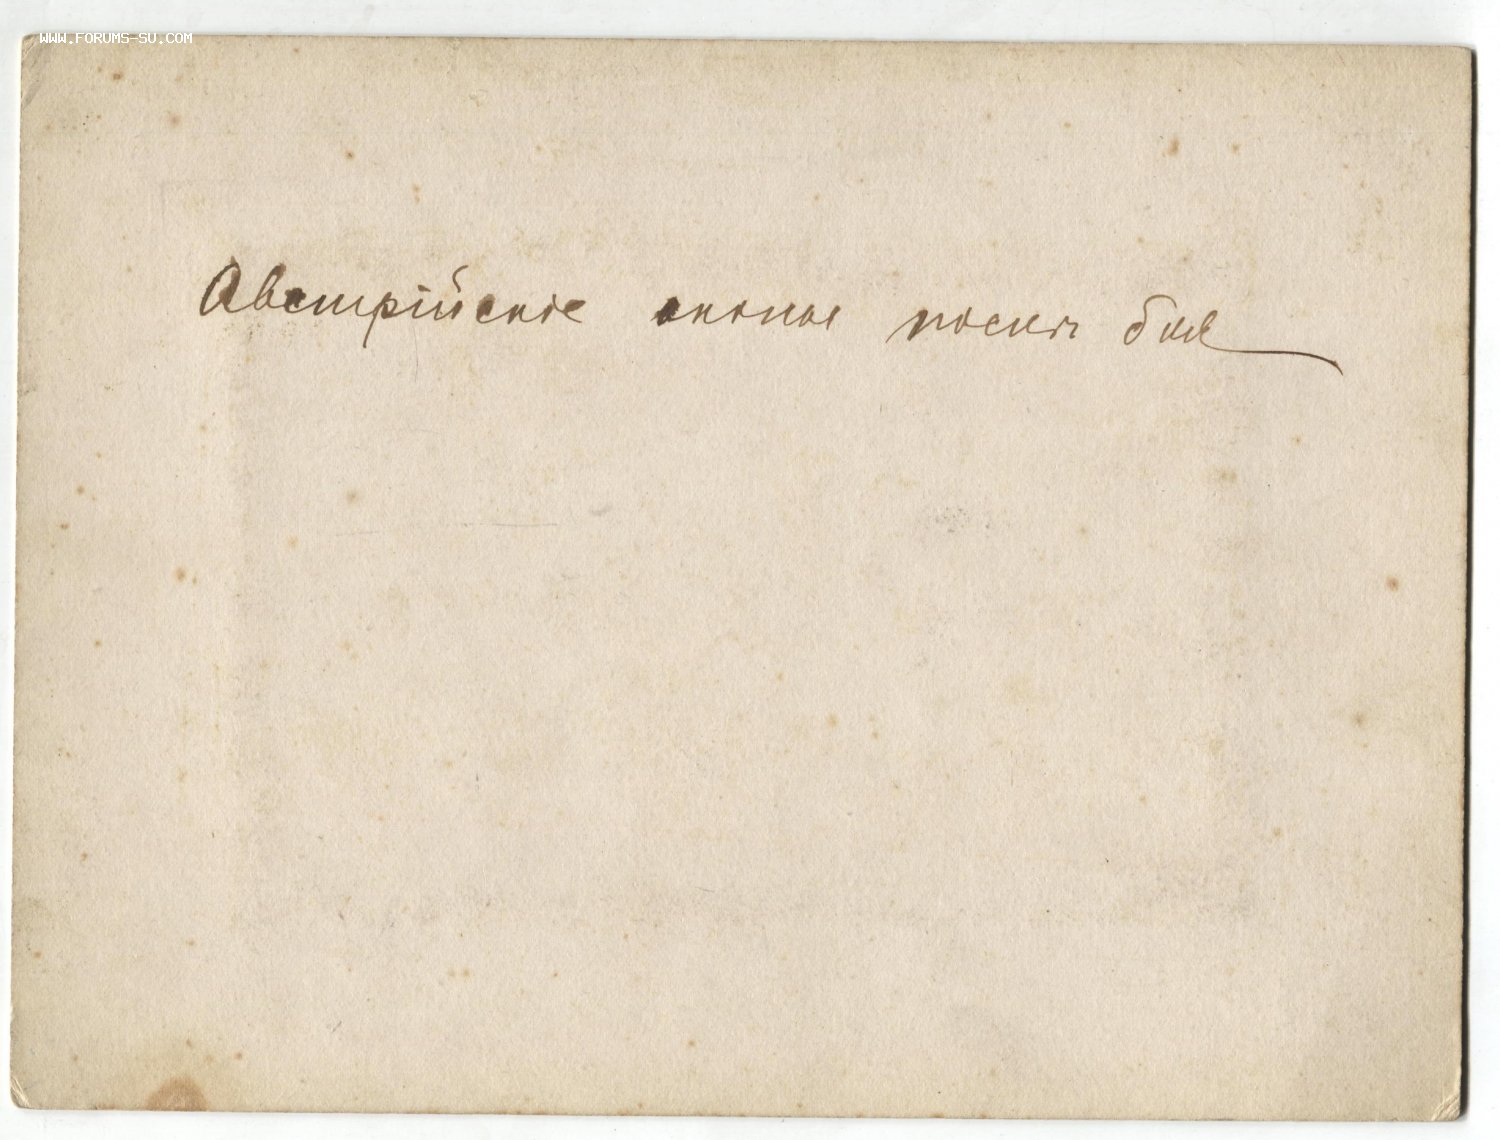 WWW.FORUMS-SU.COM
Австрійскіе окопы послѣ боя